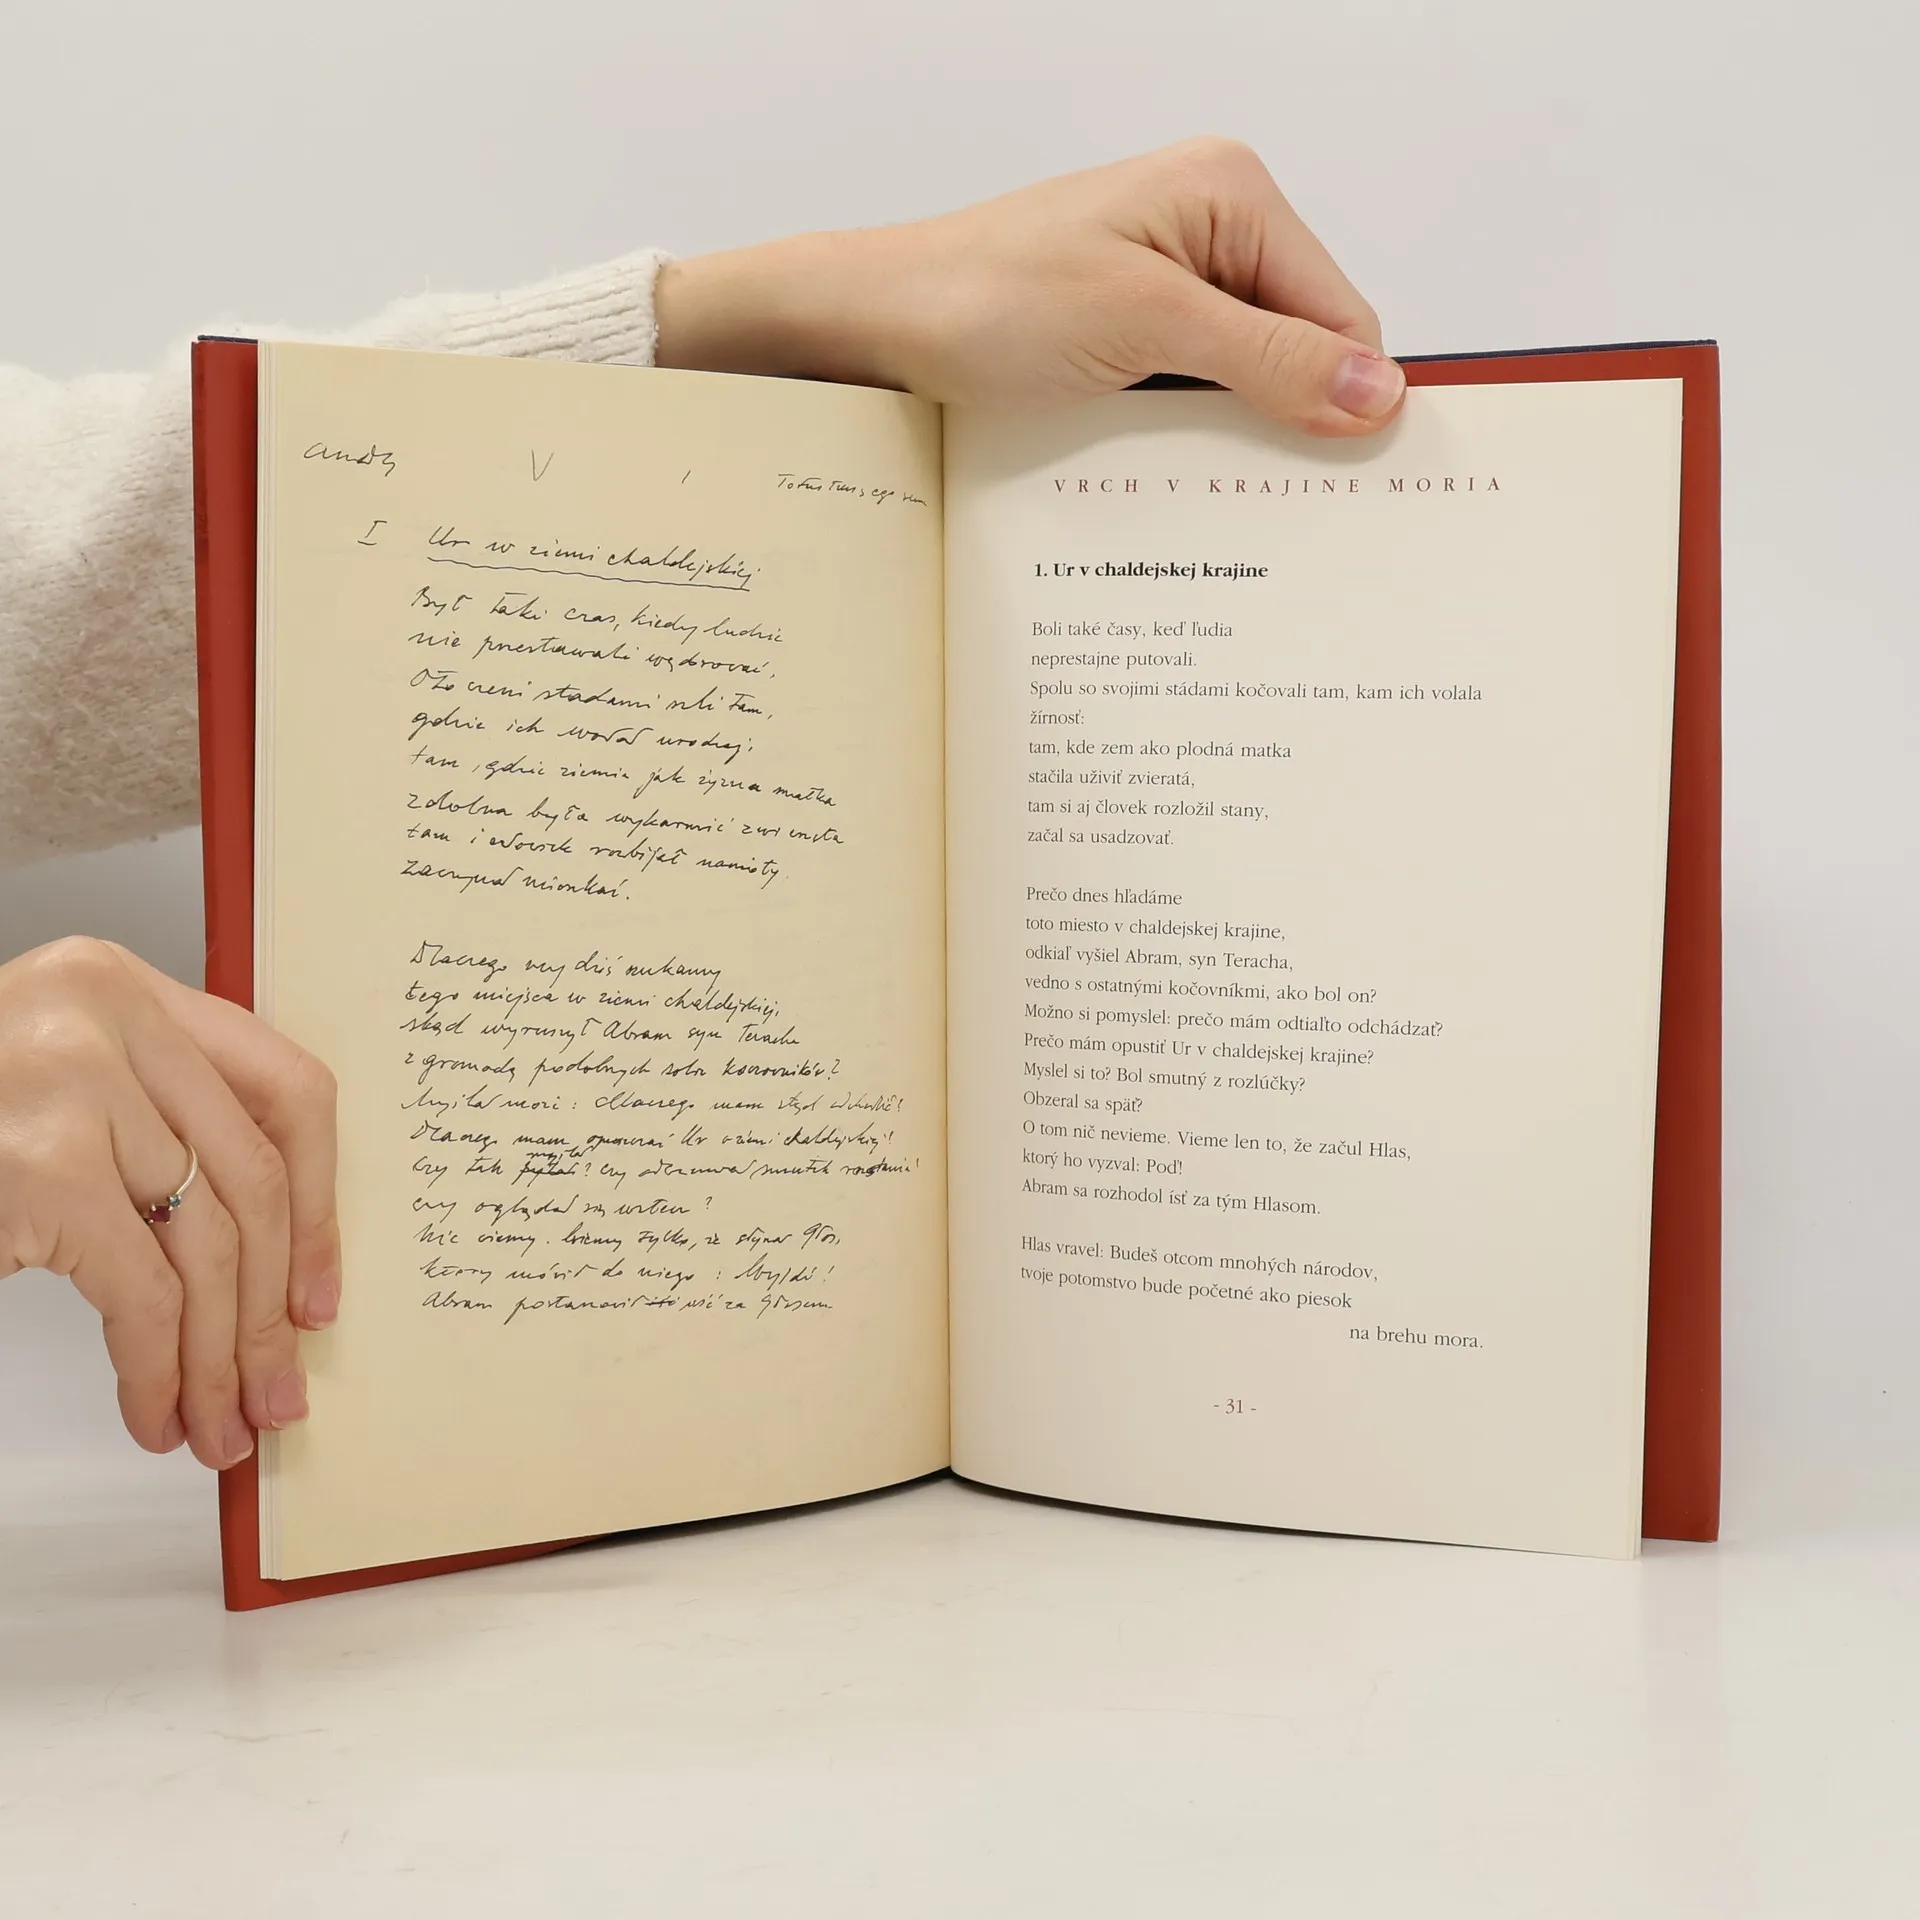 V
Totus Tuus ego sum
I
Ur w ziemi chaldejskiej
Był taki czas, kiedy ludzie
nie przestawali wędrować,
Oto czeni stadami szli tam,
gdzie ich wołał urodzaj:
tam, gdzie ziemia jak żyzna matka
zdolna była wykarmić zwierzęta
tam i człowiek rozbijał namioty
zaczynał mieszkać.
Dlaczego my dziś szukamy
tego miejsca w ziemi chaldejskiej,
skąd wyruszył Abram syn Teracha
z gromadą podobnych sobie koczowników?
Myślał może: dlaczego mam stąd odchodzić?
Dlaczego mam opuszczać Ur w ziemi chaldejskiej?
Czy tak myślał? czy odczuwał smutek rozstania?
czy oglądał się wstecz?
Nie wiemy. Wiemy tylko, że słyszał Głos,
który mówił do niego: Wyjdź!
Abram postanowił iść za Głosem
VRCH V KRAJINE MORIA
1. Ur v chaldejskej krajine
Boli také časy, keď ľudia
neprestajne putovali.
Spolu so svojimi stádami kočovali tam, kam ich volala
žírnosť:
tam, kde zem ako plodná matka
stačila uživiť zvieratá,
tam si aj človek rozložil stany,
začal sa usadzovať.
Prečo dnes hľadáme
toto miesto v chaldejskej krajine,
odkiaľ vyšiel Abram, syn Teracha,
vedno s ostatnými kočovníkmi, ako bol on?
Možno si pomyslel: prečo mám odtiaľto odchádzať?
Prečo mám opustiť Ur v chaldejskej krajine?
Myslel si to? Bol smutný z rozlúčky?
Obzeral sa späť?
O tom nič nevieme. Vieme len to, že začul Hlas,
ktorý ho vyzval: Poď!
Abram sa rozhodol ísť za tým Hlasom.
Hlas vravel: Budeš otcom mnohých národov,
tvoje potomstvo bude početné ako piesok
na brehu mora.
- 31 -